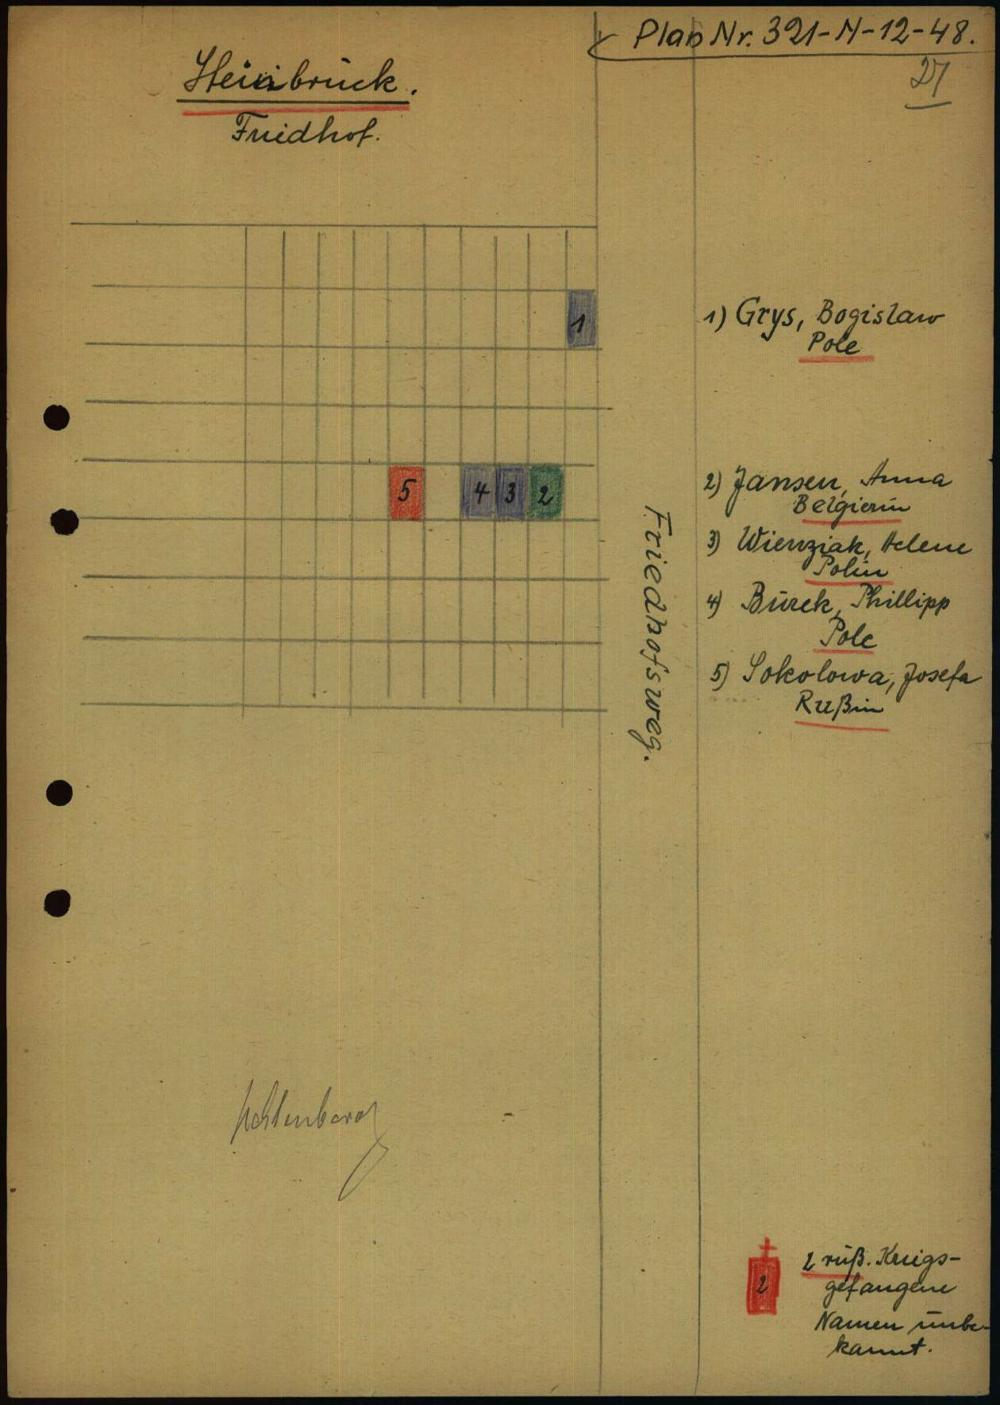 Plan Nr. 321-N-12-48.
27
Steinbrück.
Friedhof.
1
1) Grys, Bogislaw
Pole
5 4 3 2
2) Jansen, Anna
Belgierin
3) Wienziak, Helene
Polin
4) Burek, Phillipp
Pole
5) Sokolowa, Josefa
Rußin
Friedhofsweg.
2
2 ruß. Kriegs-
gefangene
Namen unbe-
kannt.